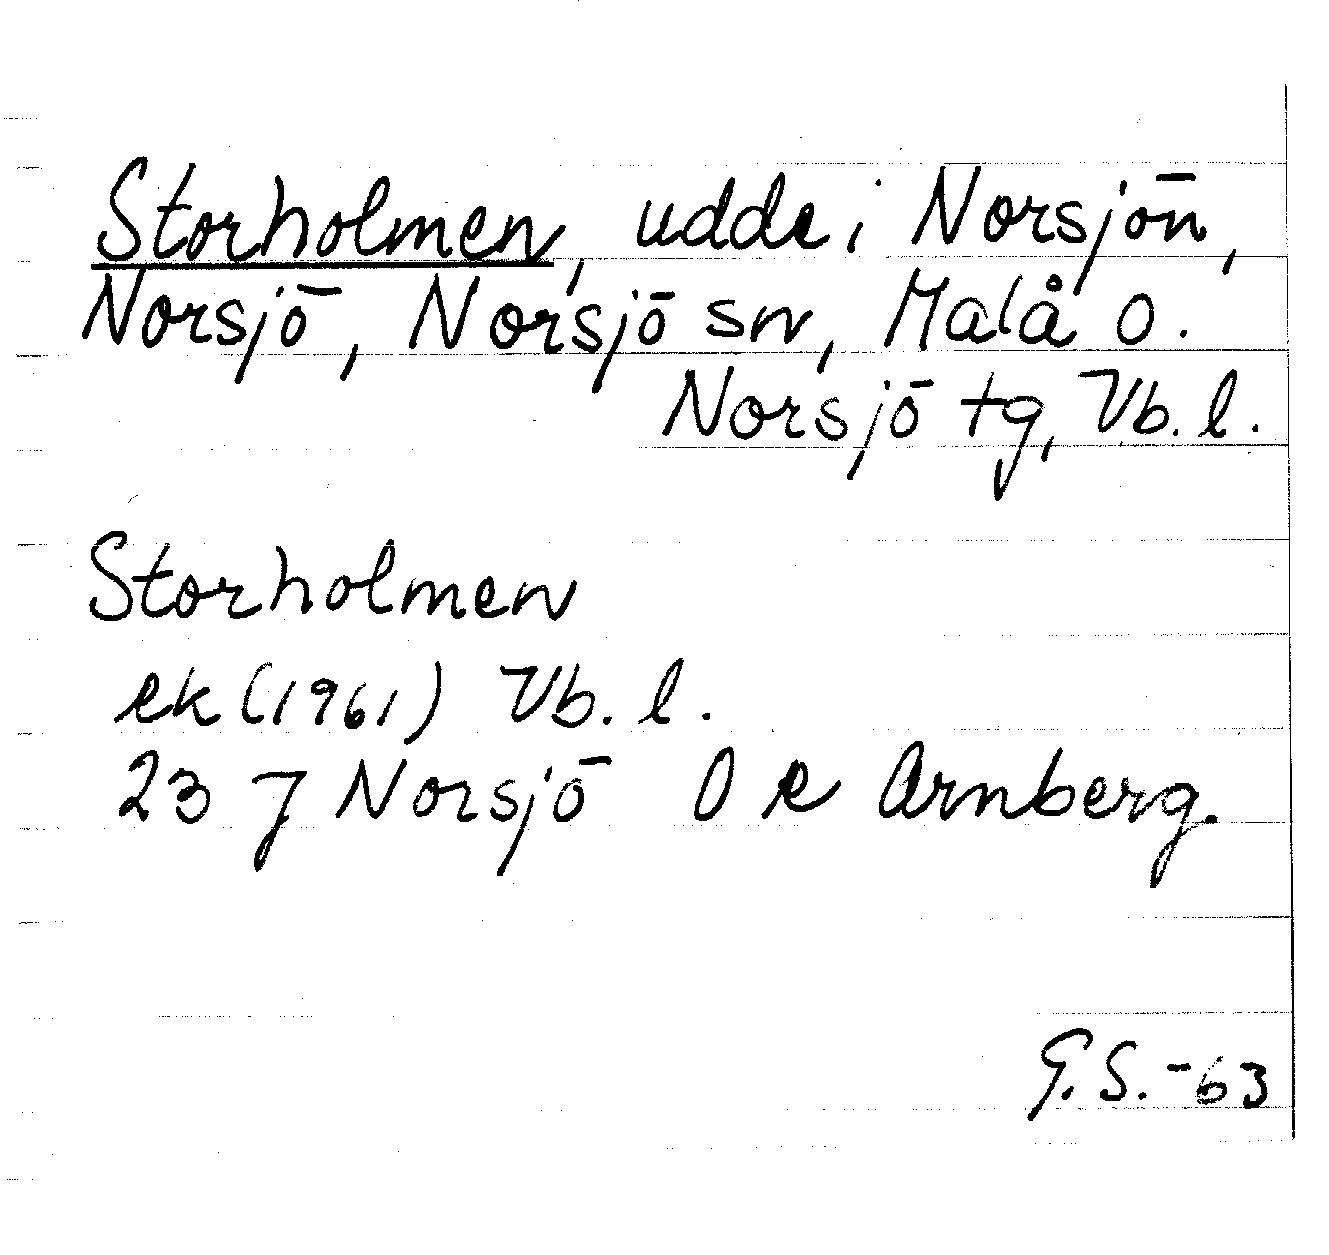 Storholmen, udde i Norsjön,
Norsjö, Norsjö sn, Malå o.
Norsjö tg, Vb. l.
Storholmen
ek (1961) Vb. l.
23 J Norsjö O e Arnberg.
G.S. -63